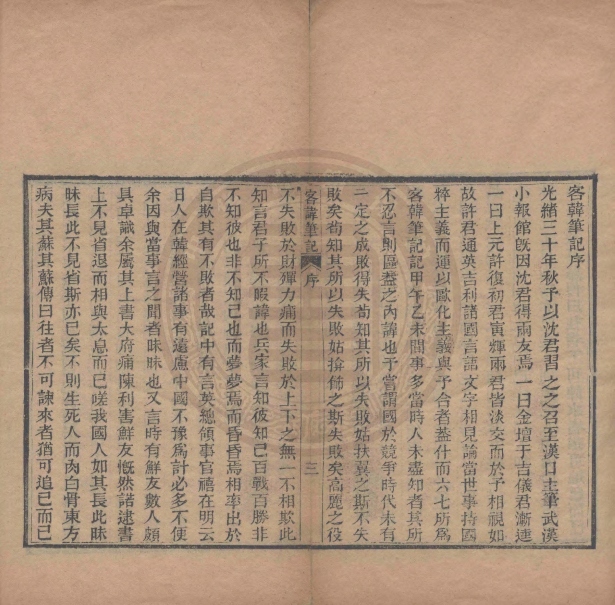 客韓筆記序
光緒三十年秋予以沈君習之之召至漢口主筆武漢
小報館旣因沈君得兩友焉一曰金壇于吉儀君漸逵
一曰上元許復初君寅輝兩君皆淡交而於予相視如
故許君通英吉利諸國言語文字相見論當世事持國
粹主義而運以歐化主義與予合者蓋什而六七所爲
客韓筆記記甲午乙未間事多當時人未盡知者其所
不忍言則區蓋之內諱也予嘗謂國於競爭時代未有
一定之成敗得失苟知其所以失敗姑扶翼之斯不失
敗矣苟知其所以失敗姑揜飾之斯失敗矣高麗之役
客韓筆記
序
三
不失敗於財殫力痡而失敗於上下之無一不相欺此
知言君子所不暇諱也兵家言知彼知己百戰百勝非
不知彼也非不知己也而夢夢焉而昏昏焉相率出於
自欺其有不敗者哉記中有言英總領事官禧在明云
日人在韓經營諸事有遠慮中國不豫爲計必多不便
余因與當事言之聞者昧昧也又言時有鮮友數人頗
具卓識余屬其上書大府痛陳利害鮮友慨然諾逮書
上不見省退而相與太息而已嗟我國人如其長此昧
昧長此不見省斯亦已矣不則生死人而肉白骨東方
病夫其蘇其蘇傳曰往者不可諫來者猶可追已而已